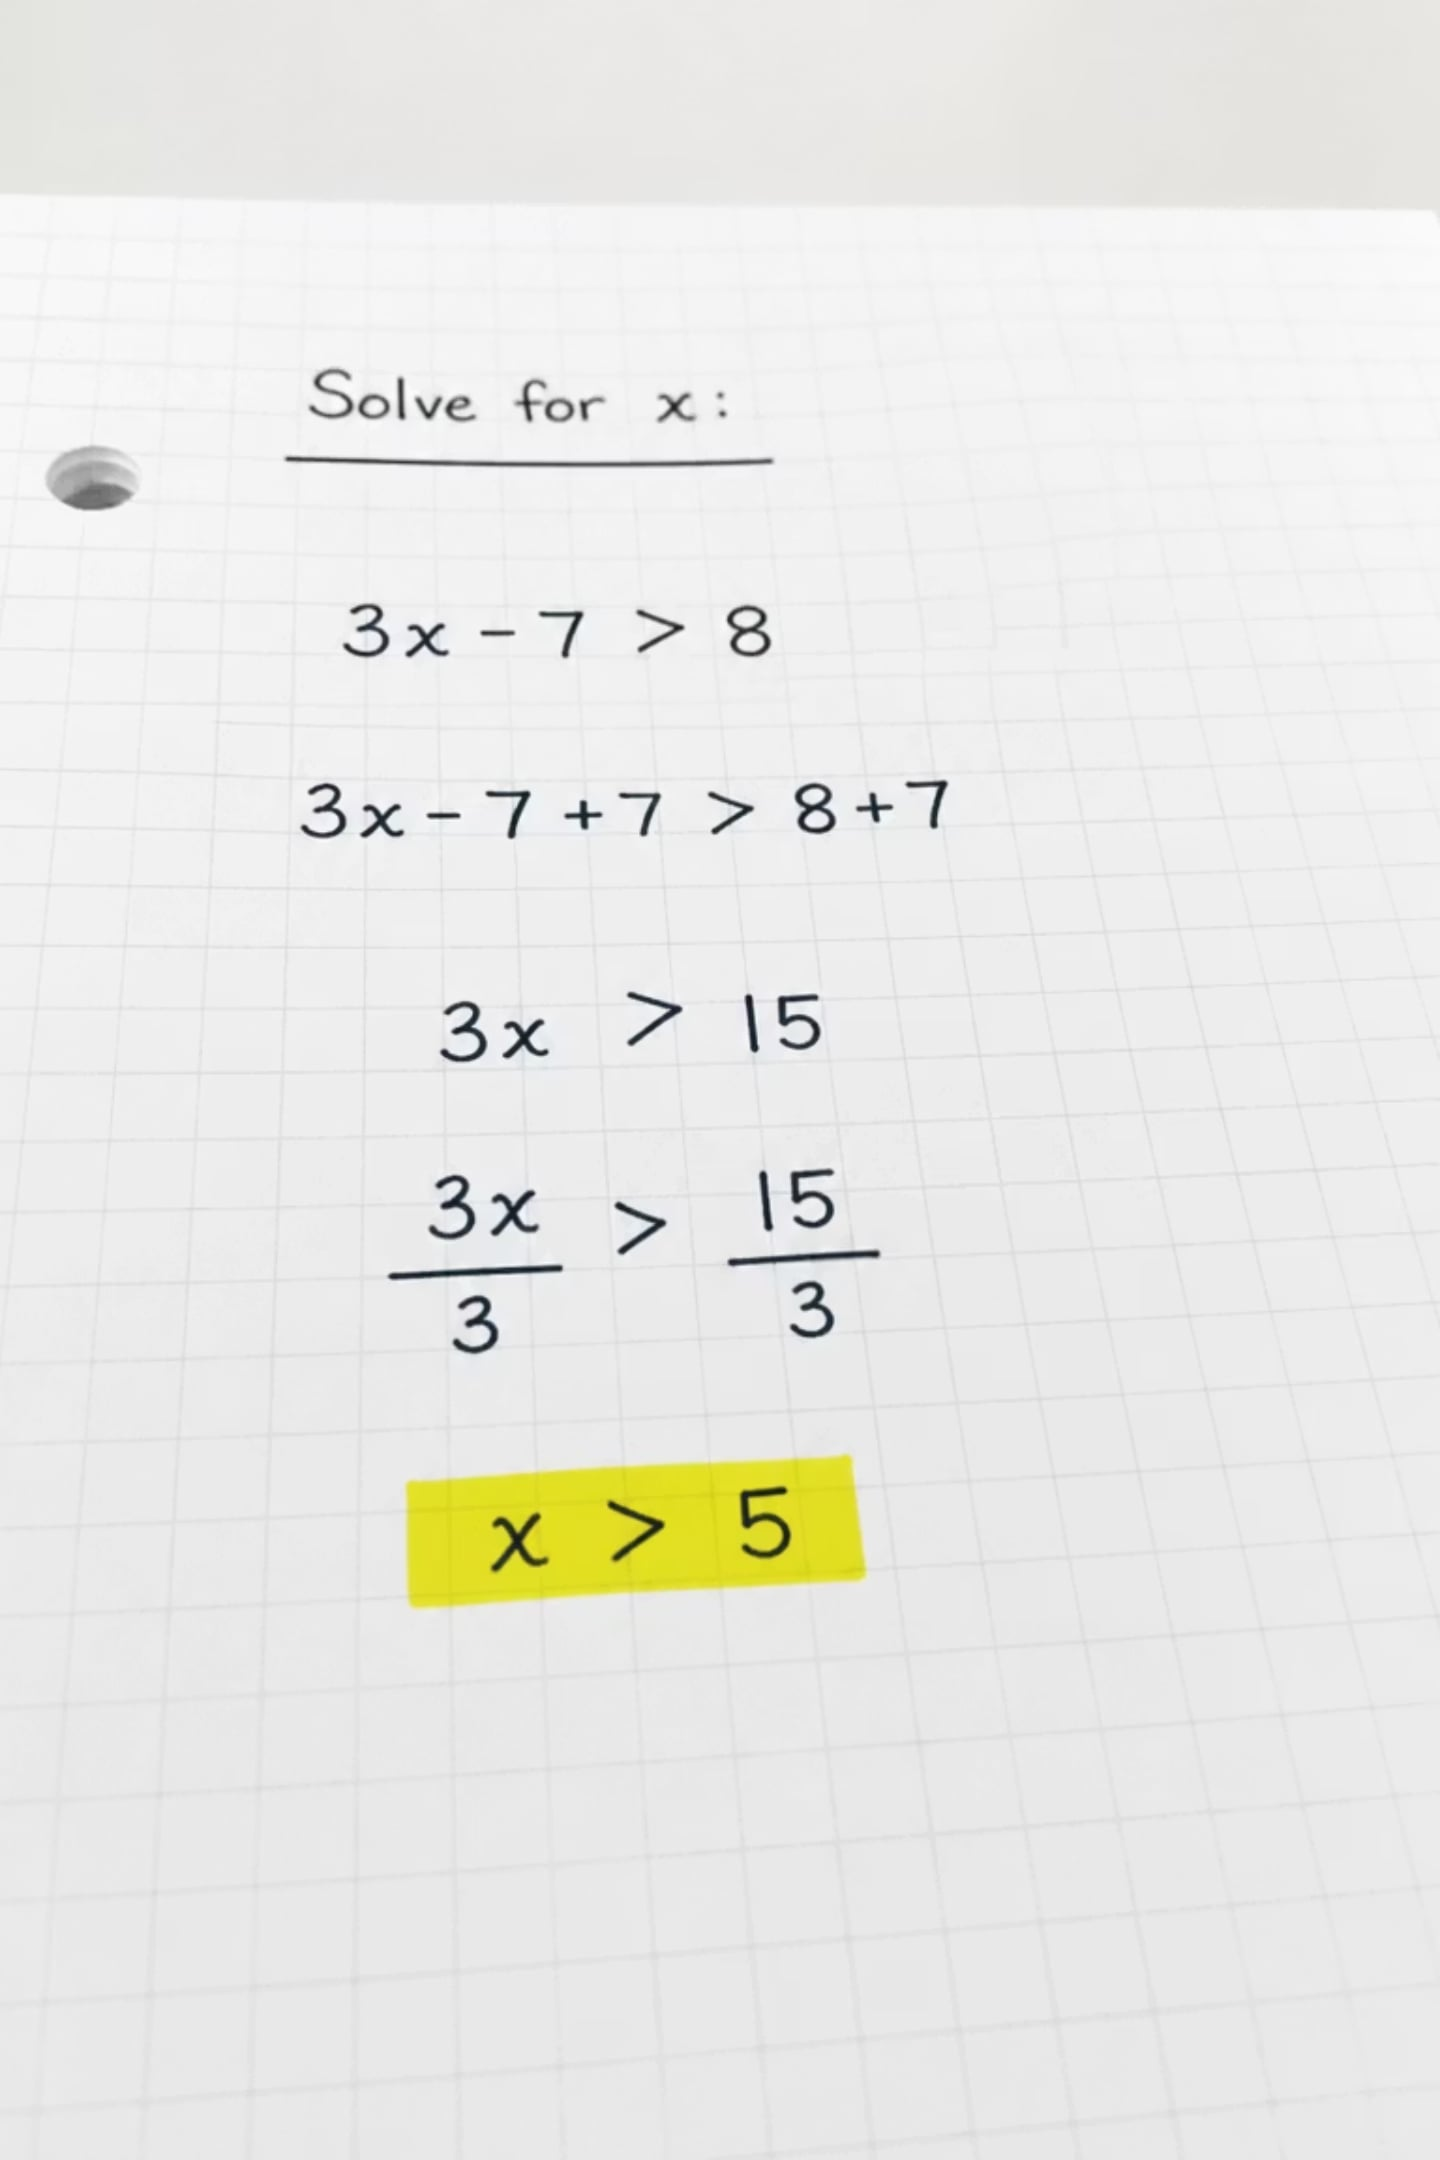 Solve for x:
3x - 7 > 8
3x - 7 + 7 > 8 + 7
3x > 15
3x/3 > 15/3
x > 5